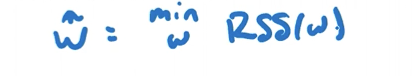 ŵ = min w RSS(w)